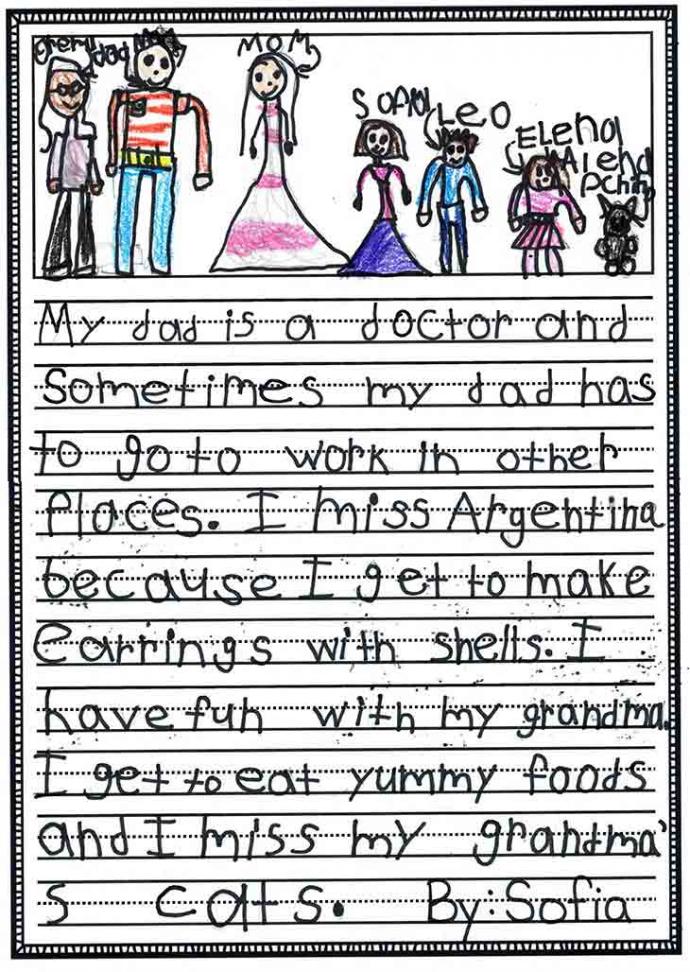 dad
MOM
SOFIA
LEO
ELEnA
My dad is a doctor and
sometimes my dad has
to go to work in other
Places. I miss Argentina
because I get to make
earrings with shells. I
have fun with my grandma.
I get to eat yummy foods
and I miss my grandma'
s cats. By: Sofia